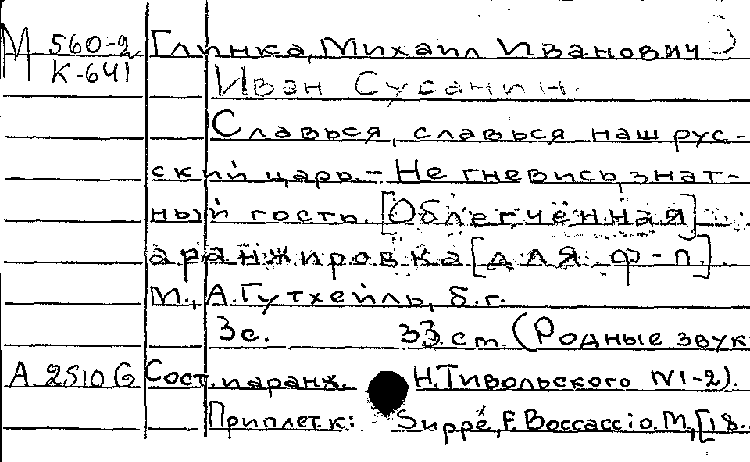 М 560-2 Глинка, Михаил Иванович
К-641 Иван Сусанин.
Славься, славься наш рус-
ский царь. - Не гневись, знат-
ный гость. [Облегчённая]
аранжировка [для ф-п].
М., А. Гутхейль, б.г.
3с. 33 ст. (Родные звук
А 2510 G Сост. и аранж. Н. Тивольского N 1-2).
Приплет к: Suppé, F. Boccaccio. М., [18.